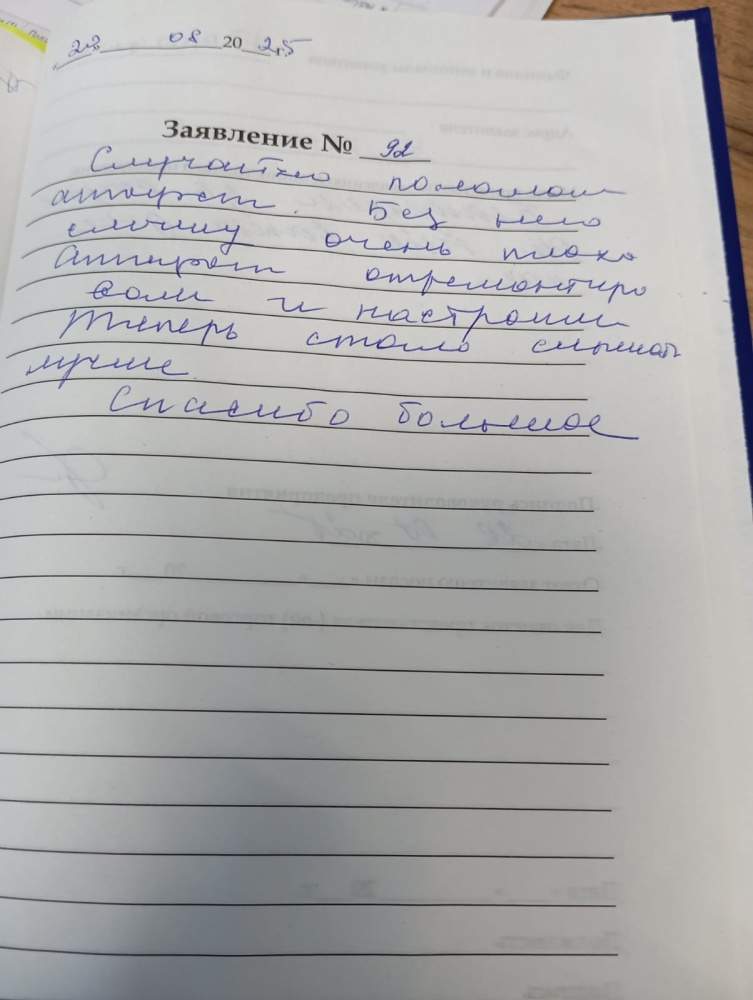 22 08 2025
Заявление № 92
Случайно поломал
аппарат. Без него
слышу очень плохо
Аппарат отремонтиро
вали и настроили
Теперь стало слышать
лучше.
Спасибо большое